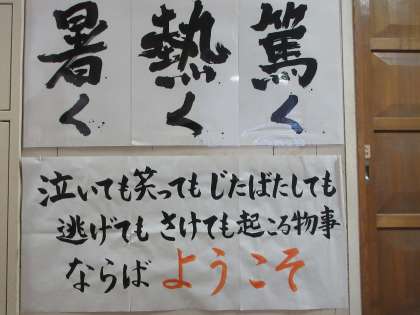 暑く
熱く
篤く
泣いても笑ってもじたばたしても
逃げてもさけても起こる物事
ならばようこそ